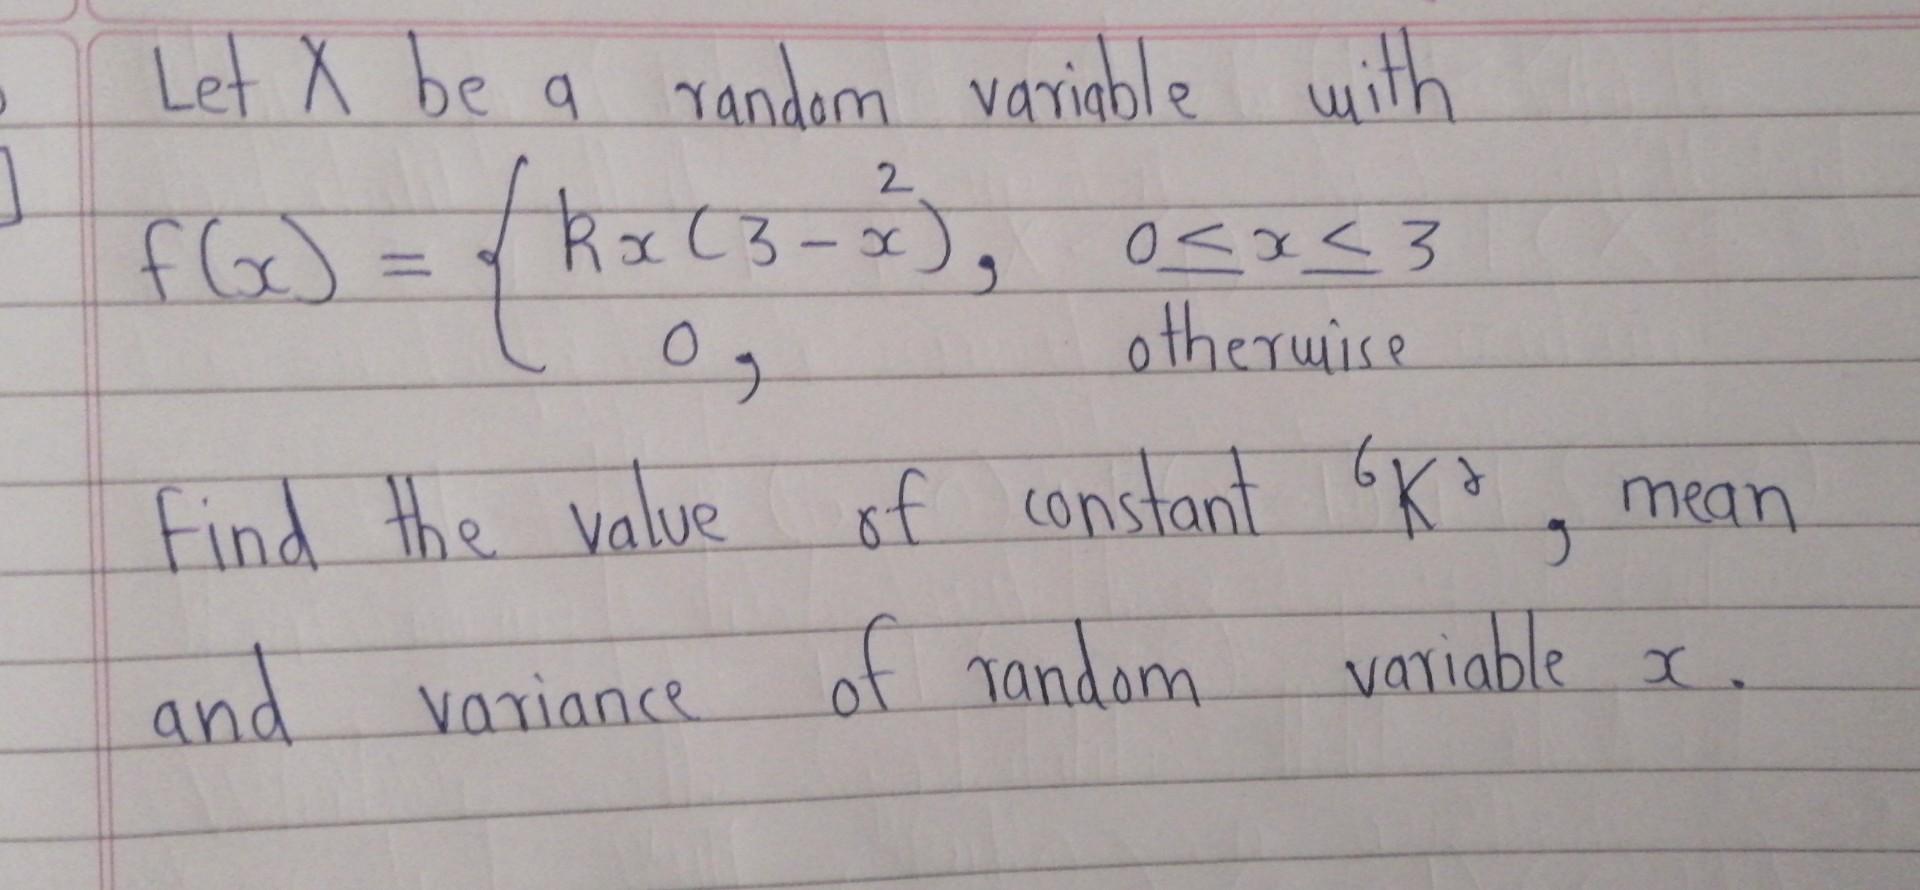 Let X be a random variable with
f(x) = { kx(3-x²), 0 ≤ x ≤ 3
0, otherwise
Find the value of constant 'K', mean
and variance of random variable x.